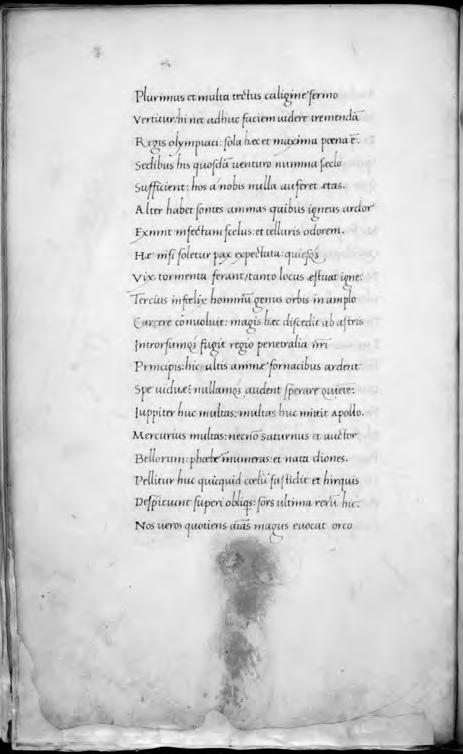 Plurimus et multa tectus caligine sermo
Vertitur: hi nec adhuc faciem uidere tremendā
Regis olympiaci: sola hæc et maxima pœna ē.
Sedibus his quosdā uenturo numina seclo
Sufficient: hos a nobis nulla auferet ætas.
Alter habet sontes animas quibus igneus ardor
Eximit infectum scelus: et telluris odorem.
Hæ nisi soletur pax expectata:
Vix tormenta ferant: tanto locus æstuat igne:
Tercius infœlix hominū genus orbis in amplo
Carcere conuoluit: magis hæc discedit ab astris
Introrsumqȝ fugit regio penetralia nr̄i
Principis: hic ultis animæ fornacibus ardent
Spe uiduæ: nullamqȝ audent sperare quietē:
Iuppiter huc multas: multas huc mittit Apollo.
Mercurius multas: necnō saturnus et auctor
Bellorum: phœbe īnumeras: et nata diones.
Pellitur huc quicquid cœlū fastidit et hirquis
Despiciunt superi obliqs: sors ultima rerū hic.
Nos uero quotiens aīas magus euocat orco